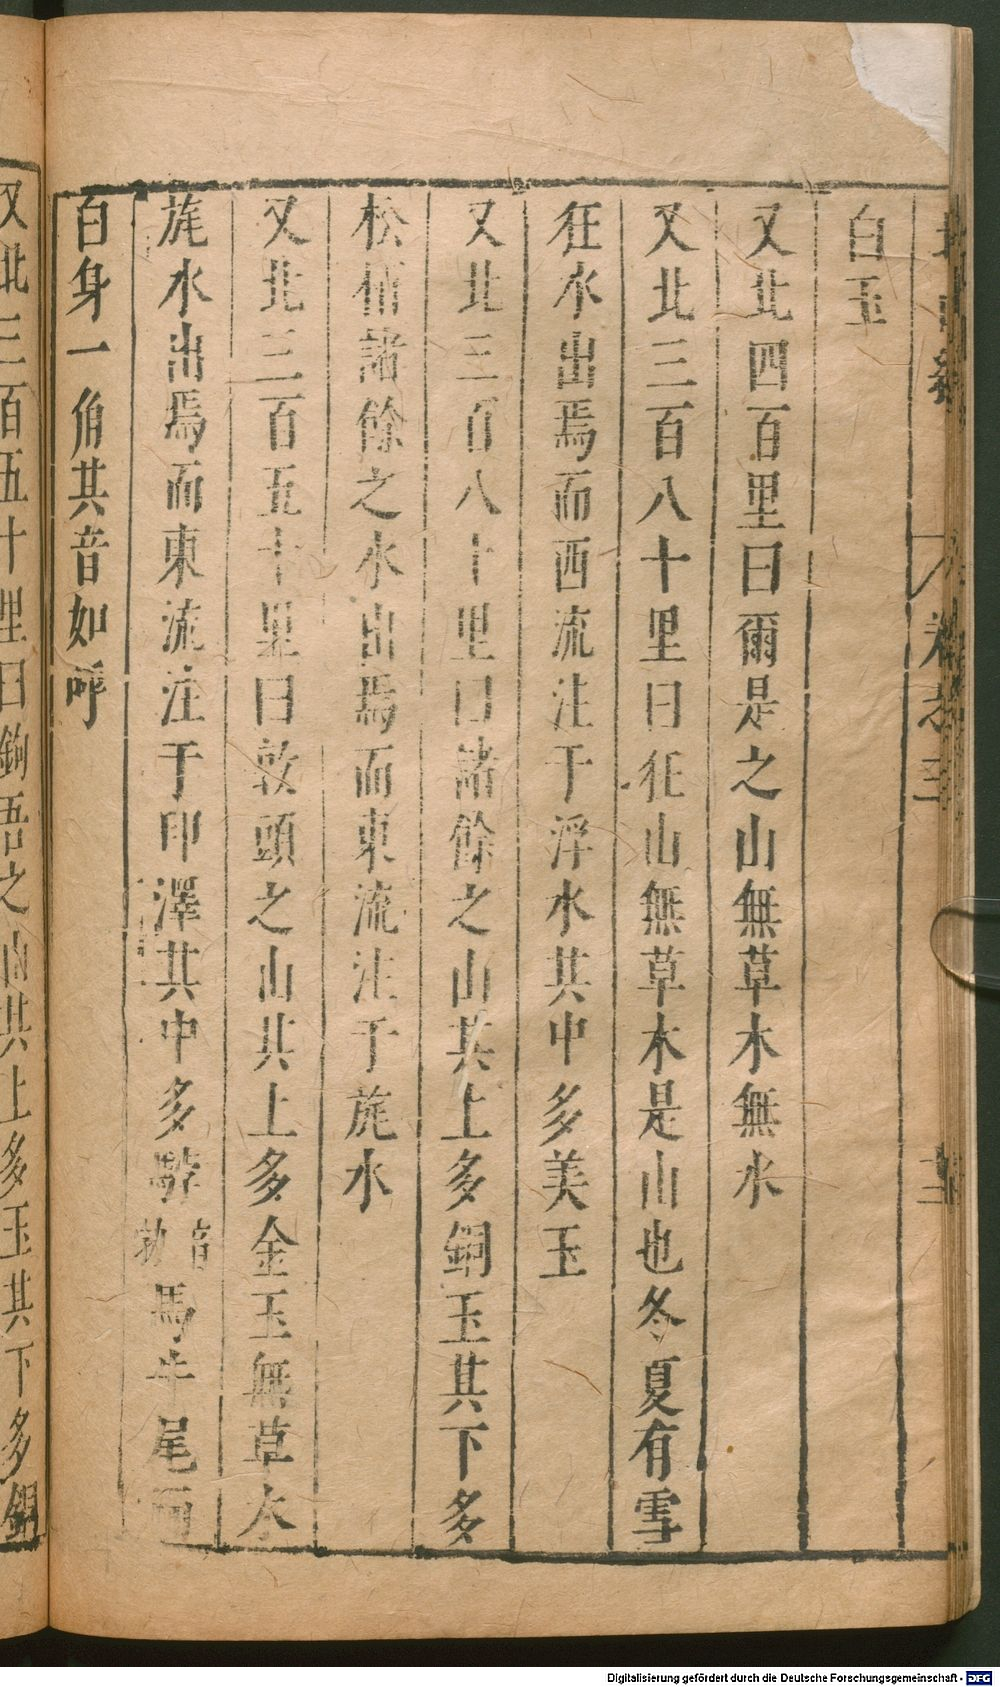 白玉
又北四百里曰爾是之山無草木無水
又北三百八十里曰狂山無草木是山也冬夏有雪
狂水出焉而西流注于浮水其中多美玉
又北三百八十里曰諸餘之山其上多銅玉其下多
松柏諸餘之水出焉而東流注于旄水
又北三百五十里曰敦頭之山其上多金玉無草木
旄水出焉而東流注于印澤其中多䮀音勃馬牛尾而
白身一角其音如呼
又北三百五十里曰鉤吾之山其上多玉其下多銅
Digitalisierung gefördert durch die Deutsche Forschungsgemeinschaft - DFG